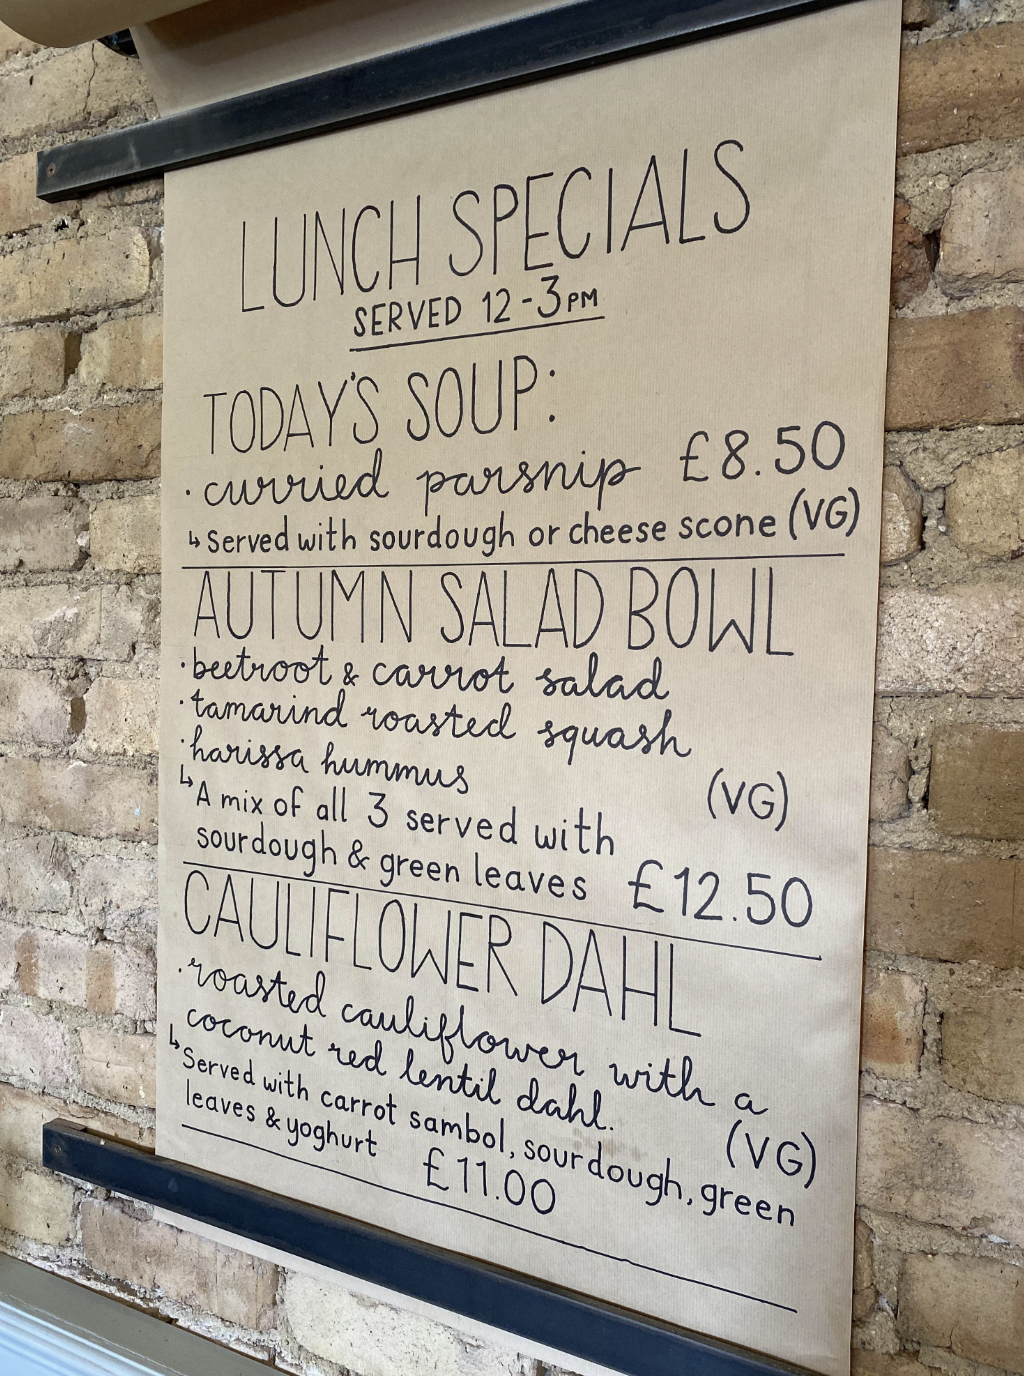 LUNCH SPECIALS
SERVED 12-3PM
TODAY'S SOUP:
· curried parsnip £8.50
↳ Served with sourdough or cheese scone (VG)
AUTUMN SALAD BOWL
· beetroot & carrot salad
· tamarind roasted squash
· harissa hummus (VG)
↳ A mix of all 3 served with
sourdough & green leaves £12.50
CAULIFLOWER DAHL
· roasted cauliflower with a
coconut red lentil dahl. (VG)
↳ Served with carrot sambol, sourdough, green
leaves & yoghurt £11.00